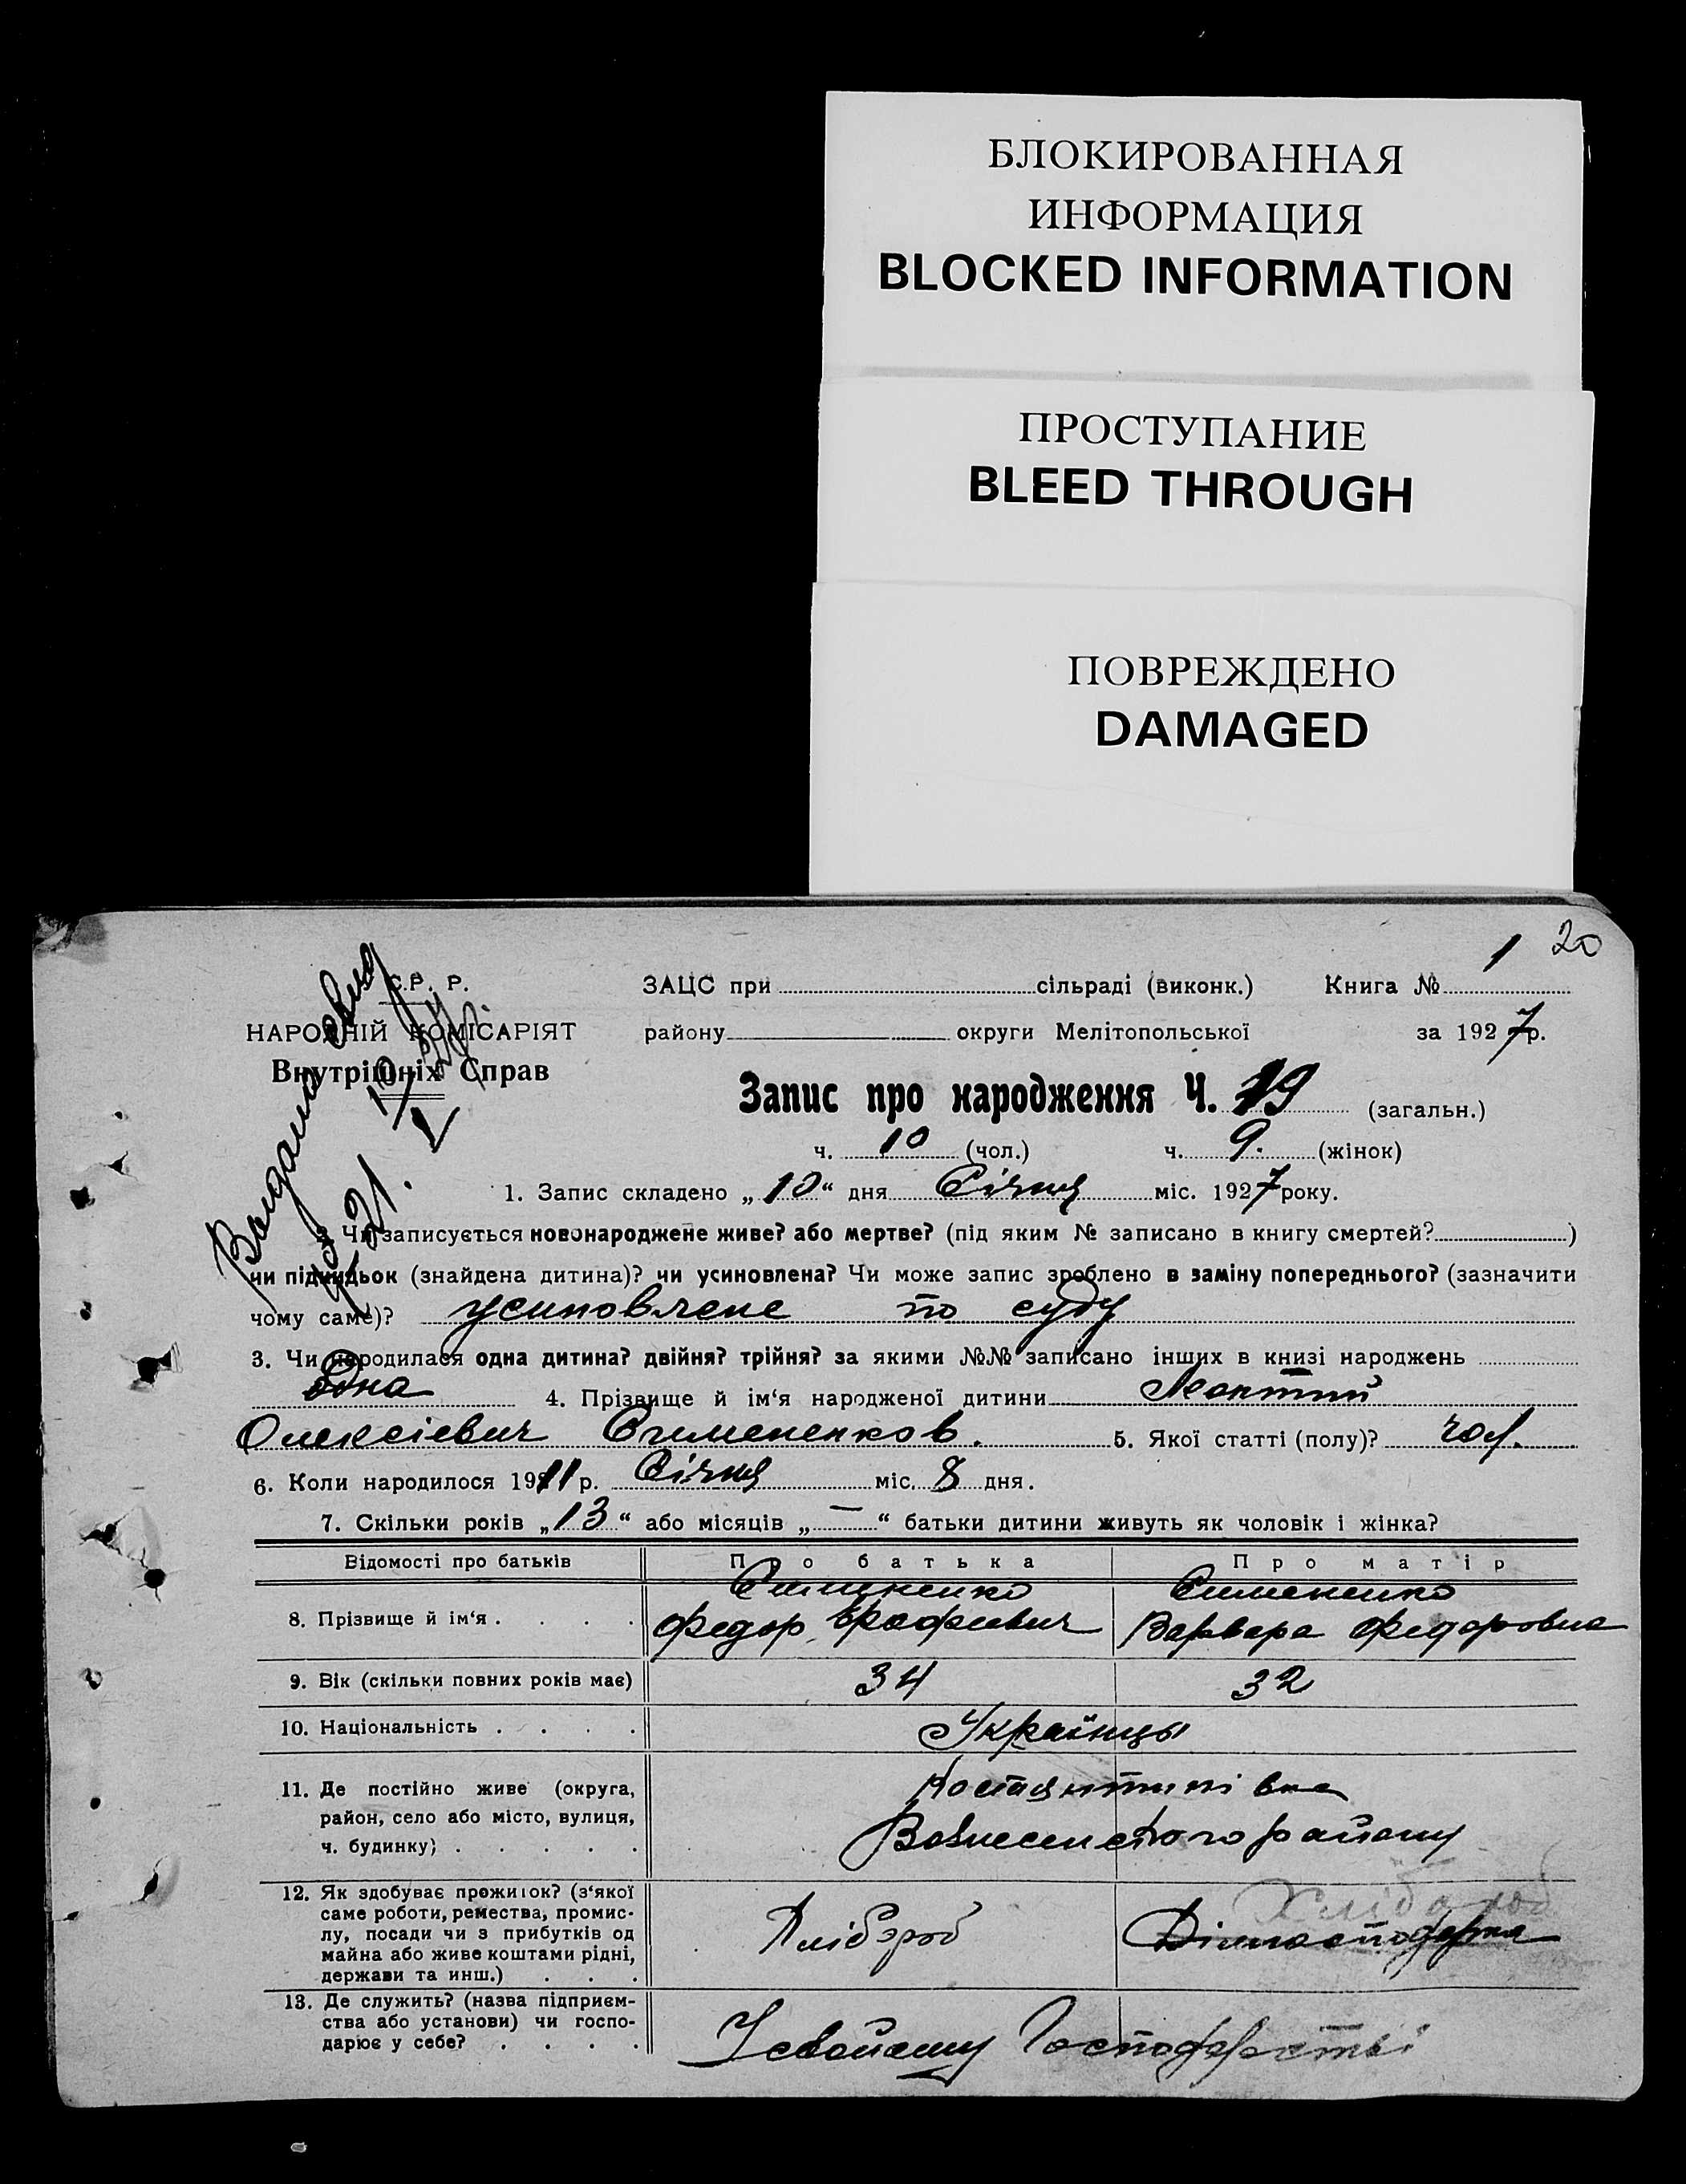 БЛОКИРОВАННАЯ
ИНФОРМАЦИЯ
BLOCKED INFORMATION
ПРОСТУПАНИЕ
BLEED THROUGH
ПОВРЕЖДЕНО
DAMAGED
1 20
С.Р. Р.
ЗАЦС при сільраді (виконк.) Книга №
НАРОДНІЙ КОМІСАРІЯТ
району округи Мелітопольської за 1927 р.
Внутрішніх Справ
Запис про народження Ч. 19 (загальн.)
ч. 10 (чол.) ч. 9. (жінок)
1. Запис складено „10“ дня Січня міс. 1927 року.
Чи записується новонароджене живе? або мертве? (під яким № записано в книгу смертей? )
чи підкидьок (знайдена дитина)? чи усиновлена? Чи може запис зроблено в заміну попереднього? (зазначити
чому саме)? усиновлене по суду
3. Чи народилася одна дитина? двійня? трійня? за якими №№ записано інших в книзі народжень
Одна 4. Прізвище й ім‘я народженої дитини
Олексієвич 5. Якої статті (полу)? чол.
6. Коли народилося 1911 р. Січня міс. 8 дня.
7. Скільки років „13“ або місяців „—“ батьки дитини живуть як чоловік і жінка?
Відомості про батьків Про батька Про матір
Симененко Симененко
8. Прізвище й ім‘я . . . . Федор Варвара Федоровна
9. Вік (скільки повних років має) 34 32
10. Національність . . . . Українцы
11. Де постійно живе (округа,
район, село або місто, вулиця,
ч. будинку) . . . . .
Вознесенського району
12. Як здобуває прожиток? (з‘якої
саме роботи, ремества, промис-
лу, посади чи з прибутків од
майна або живе коштами рідні,
держави та инш.) . . .
Хлібороб Хлібороб
13. Де служить? (назва підприєм-
ства або установи) чи госпо-
дарює у себе? . . . .
У свойому Господарстві